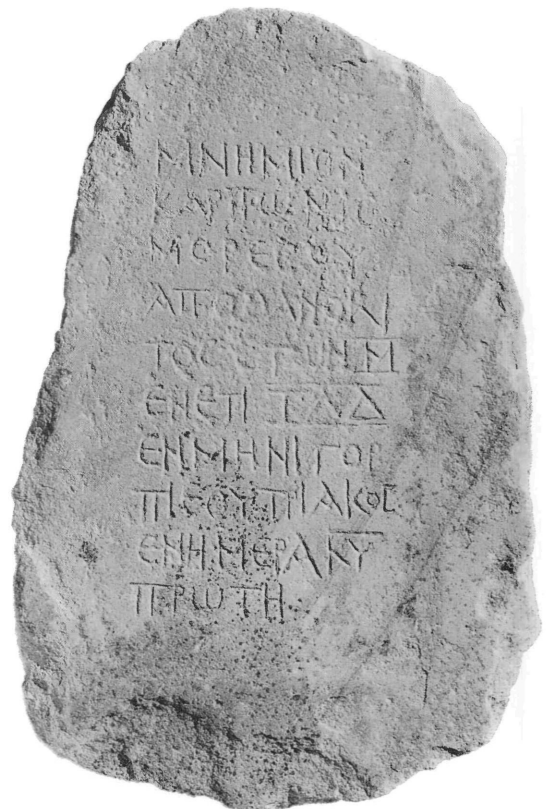 ΜΝΗΜΙΟΝ
ΑΠΟΘΑΝΟΝ
ΤΟϹ ΕΤΩΝ Μ
ΕΝ ΕΤΙ ΤΛΔ
ΕΝ ΜΗΝΙ ΓΟΡ
ΠΙΕΟΥ ΤΡΙΑΚΟϹ
ΕΝ ΗΜΕΡΑ ΚΥ
ΠΡΩΤΗ